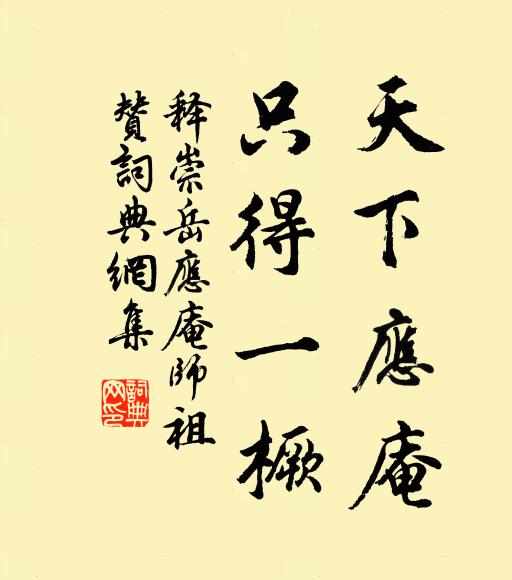 天下應庵
只得一橛
释崇岳應庵師祖
贊詞典網集
詞典
网印